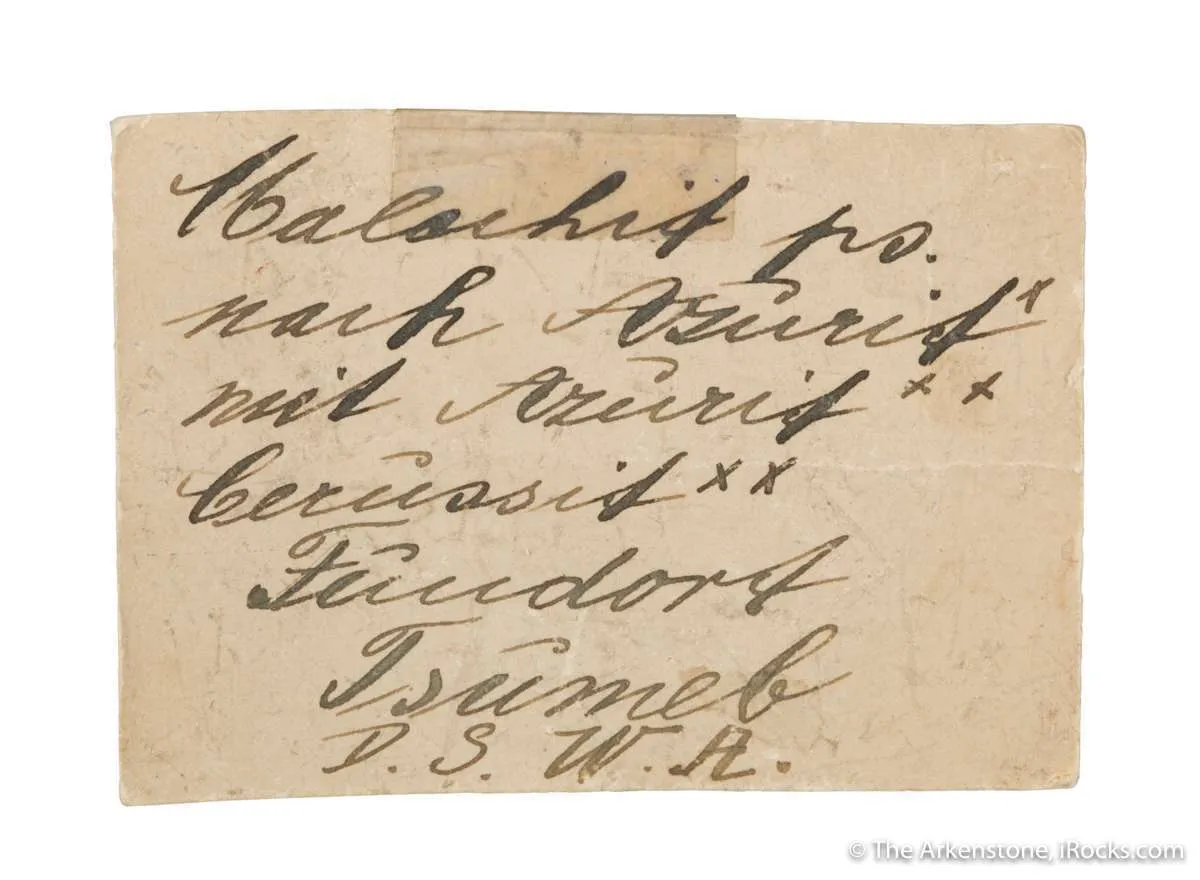 Malachit ps.
nach Azurit x
mit Azurit x x
Cerussit x x
Fundort
Tsumeb
D. S. W. A.
© The Arkenstone, iRocks.com